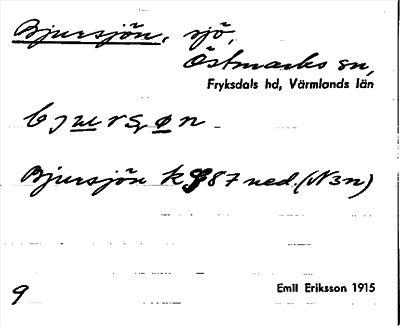 Bjursjön, sjö,
Östmarks sn,
Fryksdals hd, Värmlands län
bjursøn
Bjursjön k 987 ned. (N3n)
9
Emil Eriksson 1915